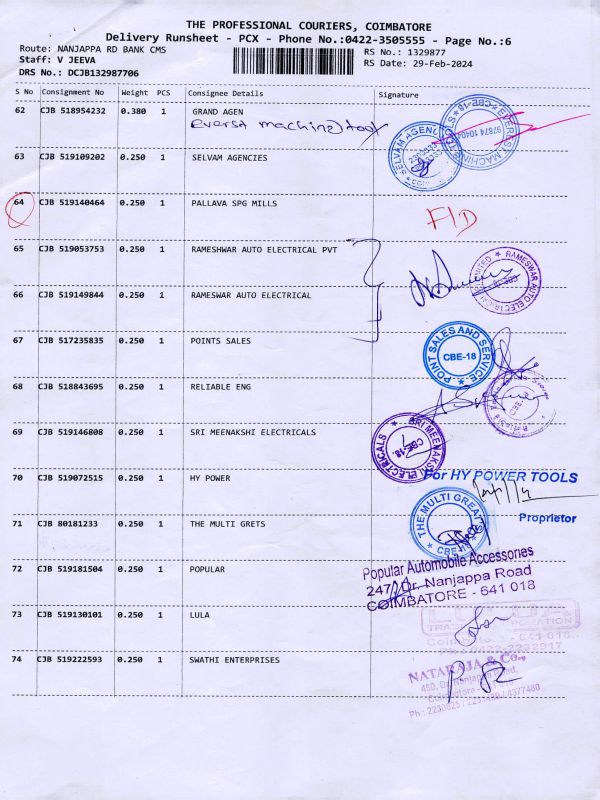 THE PROFESSIONAL COURIERS, COIMBATORE
Delivery Runsheet - PCX - Phone No.:0422-3505555 - Page No.:6
Route: NANJAPPA RD BANK CMS
RS No.: 1329877
Staff: V JEEVA
RS Date: 29-Feb-2024
DRS No.: DCJB132987706
S No Consignment No Weight PCS Consignee Details Signature
62 CJB 518954232 0.380 1 GRAND AGEN
machine tool
63 CJB 519109202 0.250 1 SELVAM AGENCIES
SELVAM AGENC
EVEREST MACHINE
64 CJB 519140464 0.250 1 PALLAVA SPG MILLS
F/D
65 CJB 519053753 0.250 1 RAMESHWAR AUTO ELECTRICAL PVT
66 CJB 519149844 0.250 1 RAMESWAR AUTO ELECTRICAL
RAMESWAR AUTO ELECTRICALS
67 CJB 517235835 0.250 1 POINTS SALES
POINT SALES AND SERVICE
CBE-18
68 CJB 518843695 0.250 1 RELIABLE ENG
69 CJB 519146808 0.250 1 SRI MEENAKSHI ELECTRICALS
SRI MEENAKSHI ELECTRICALS
CBE-18.
70 CJB 519072515 0.250 1 HY POWER
For HY POWER TOOLS
Proprietor
71 CJB 80181233 0.250 1 THE MULTI GRETS
THE MULTI GREAT
72 CJB 519181504 0.250 1 POPULAR
Popular Automobile Accessories
247, Dr. Nanjappa Road
COIMBATORE - 641 018
73 CJB 519130101 0.250 1 LULA
74 CJB 519222593 0.250 1 SWATHI ENTERPRISES
NATARAJA & Co.,